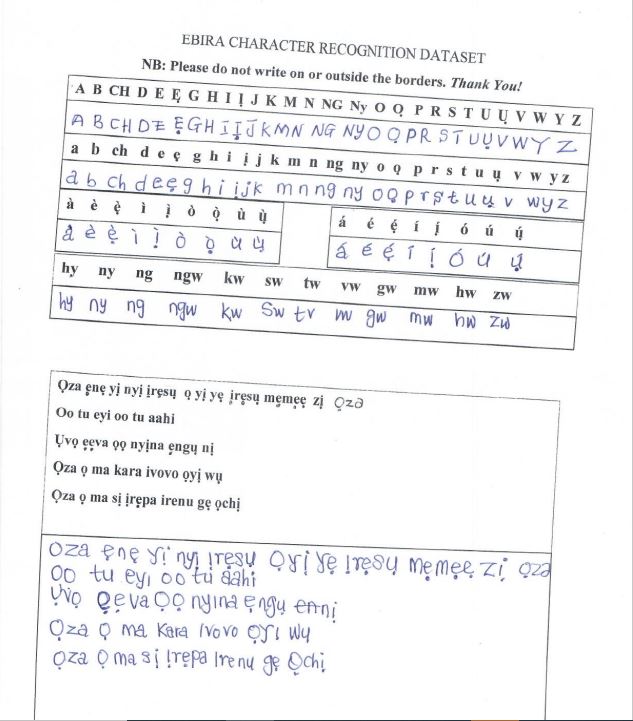 EBIRA CHARACTER RECOGNITION DATASET
NB: Please do not write on or outside the borders. Thank You!
A B CH D E Ẹ G H I Ị J K M N NG Ny O Ọ P R S T U Ụ V W Y Z
A B CH D E Ẹ G H I Ị J K M N NG NY O Ọ P R S T U Ụ V W Y Z
a b ch d e ẹ g h i ị j k m n ng ny o ọ p r s t u ụ v w y z
a b ch d e ẹ g h i ị j k m n ng ny o ọ p r s t u ụ v w y z
à è ẹ̀ ì ị̀ ò ọ̀ ù ụ̀
à è ẹ̀ ì ị̀ ò ọ̀ ù ụ̀
á é ẹ́ í ị́ ó ú ụ́
á é ẹ́ í ị́ ó ú ụ́
hy ny ng ngw kw sw tw vw gw mw hw zw
hy ny ng ngw kw sw tv vw gw mw hw zw
Ọza ẹnẹ yị nyị ịrẹsụ ọ yị yẹ ịrẹsụ mẹmẹẹ zị ọza
Oo tu eyi oo tu aahi
Ụvọ ẹẹva ọọ nyịna ẹngụ nị
Ọza ọ ma kara ivovo ọyị wụ
Ọza ọ ma sị ịrẹpa irenu gẹ ọchị
Oza ẹnẹ yị nyị ịrẹsụ Ọ yị yẹ ịrẹsụ mẹmẹẹ zị ọza
Oo tu eyi oo tu aahi
Ụvọ ẹẹva Ọọ nyina ẹngụ nị
Ọza Ọ ma kara ivovo Ọyị wụ
Ọza Ọ ma sị ịrẹpa Irenu gẹ Ọchị